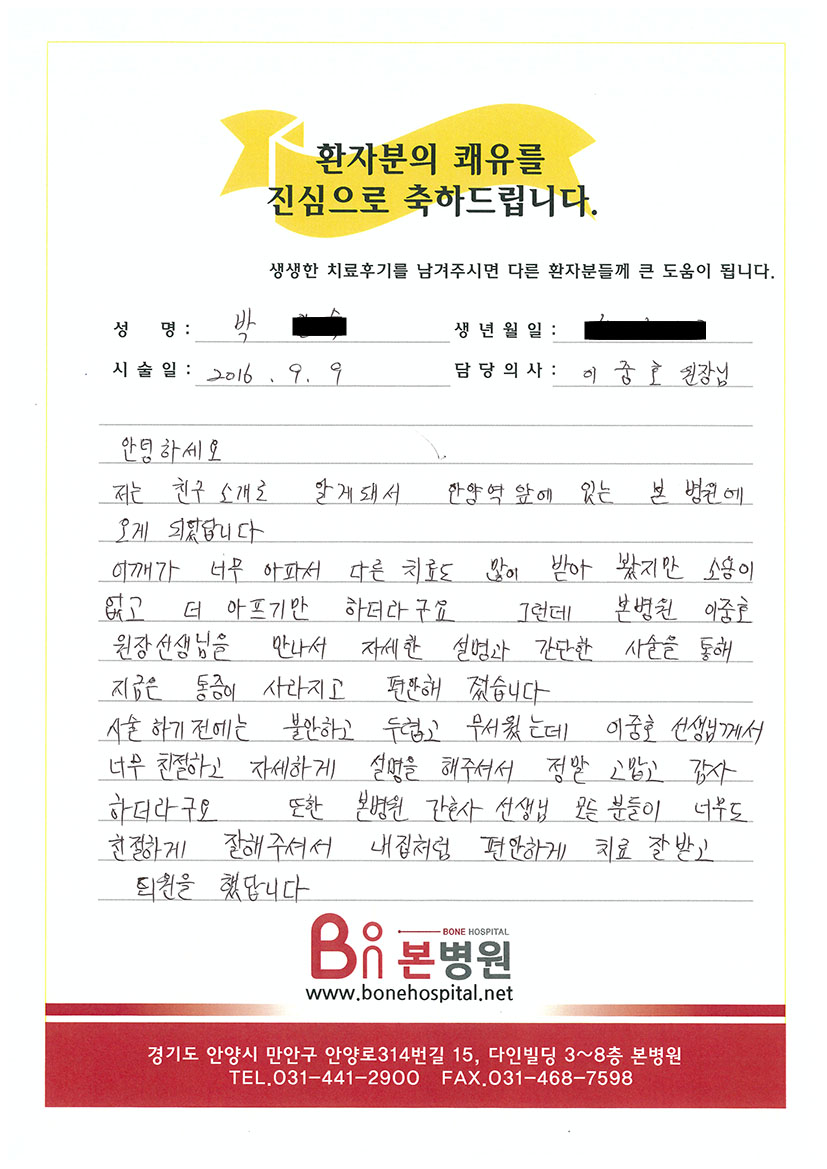 환자분의 쾌유를
진심으로 축하드립니다.
생생한 치료후기를 남겨주시면 다른 환자분들께 큰 도움이 됩니다.
성 명 : 박 생년월일 :
시술일 : 2016 . 9. 9 담당의사 : 이 중 호 원장님
안녕하세요
저는 친구 소개로 알게돼서 안양역 앞에 있는 본 병원에
오게 되었답니다
어깨가 너무 아파서 다른 치료도 많이 받아 봤지만 소용이
없고 더 아프기만 하더라구요 그런데 본병원 이중호
원장선생님을 만나서 자세한 설명과 간단한 시술을 통해
지금은 통증이 사라지고 편안해 졌습니다
시술 하기전에는 불안하고 두렵고 무서웠는데 이중호 선생님께서
너무 친절하고 자세하게 설명을 해주셔서 정말 고맙고 감사
하더라구요 또한 본병원 간호사 선생님 모든 분들이 너무도
친절하게 잘해주셔서 내집처럼 편안하게 치료 잘받고
퇴원을 했답니다
BONE HOSPITAL
Bon 본병원
www.bonehospital.net
경기도 안양시 만안구 안양로314번길 15, 다인빌딩 3~8층 본병원
TEL.031-441-2900 FAX.031-468-7598